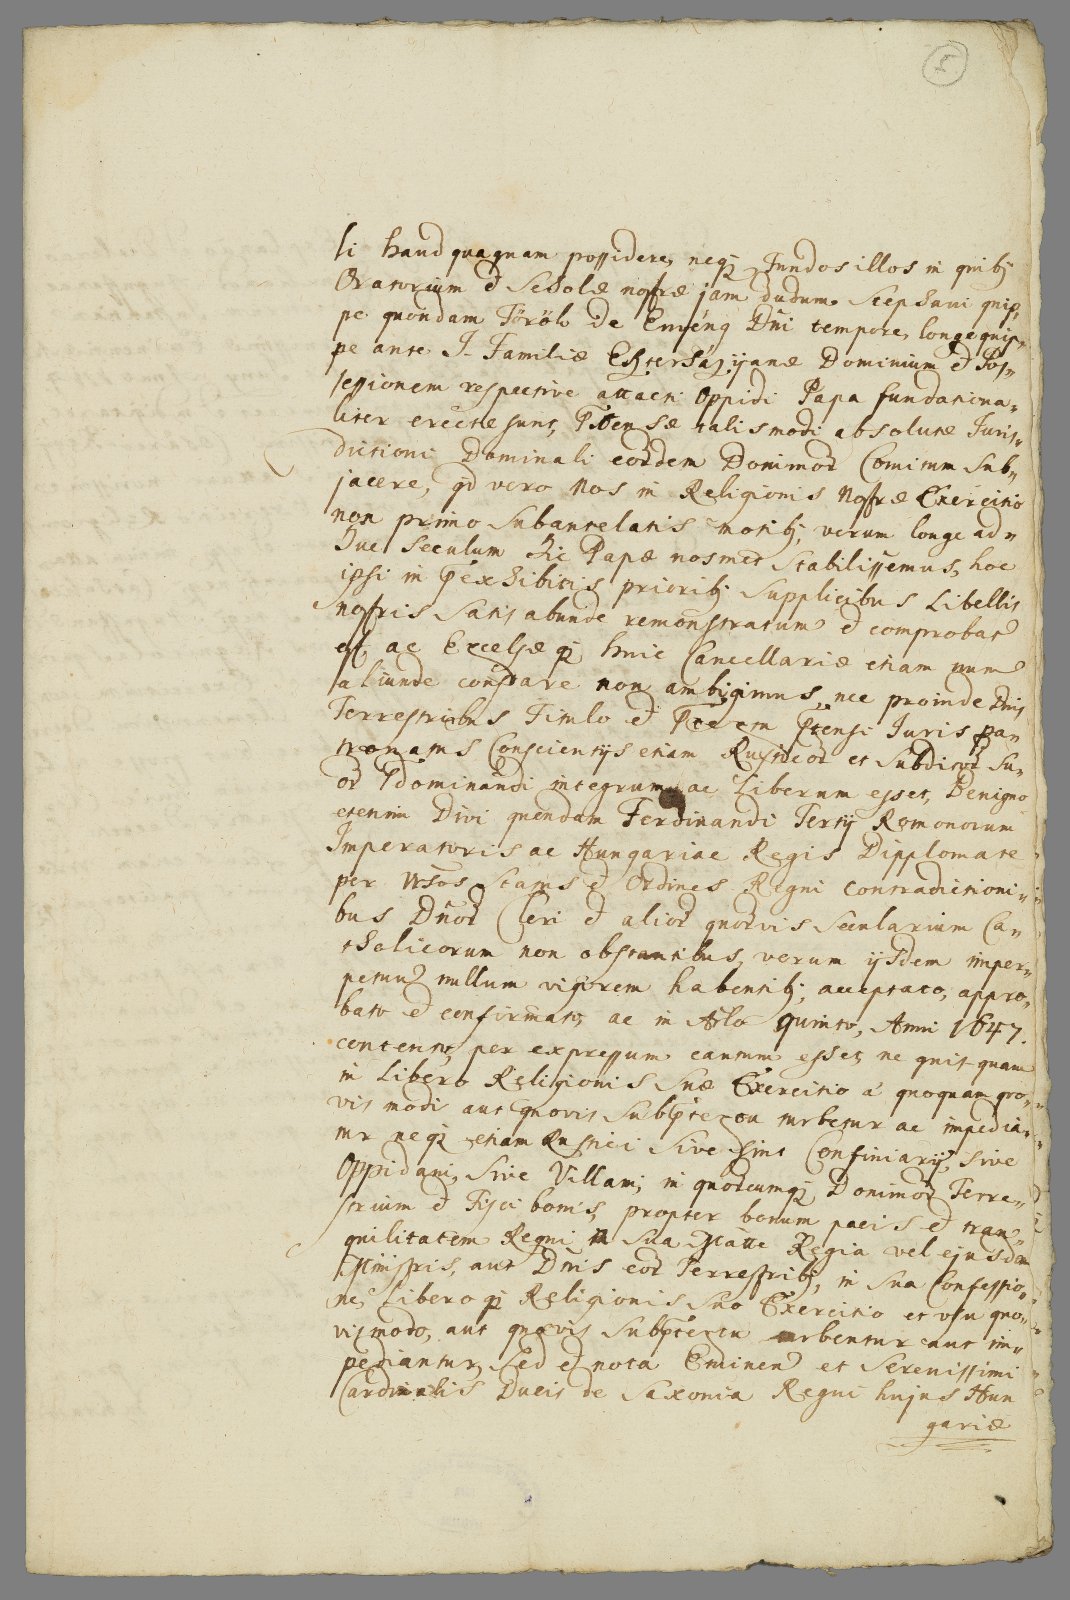 5
li haud quaquam possidere, neqꝫ Fundos illos in quibꝫ
Oratorium et Scholæ nostræ jam dudum Stephani quip„
pe quondam Török de Enÿeng Dñi tempore, longe quip„
pe ante I. Familiæ Eszterházÿanæ Dominium et Pos„
sessionem respective attacti Oppidi Papa fundationa„
liter erectæ sunt, talismodi absolutæ Juris„
dictioni Dominali eordem Dominor Comitum Sub„
jacere, qd vero Nos in Religionis Nostræ Exercitio
non primo Subantelatis motibꝫ, verum longe ad„
huc Seculum hic Papæ nosmet Stabilissemus, hoc
ipsi in exhibitis prioribꝫ Supplicibus Libellis
nostris Satis abunde remonstratum et comprobat
est, ac Excelsæ qꝫ huic Cancellariæ etiam nunc
aliunde constare non ambigimus, nec proinde Dnis
Terrestribus Titulo et Prætensi Juris pa„
tronatus Conscientijs etiam Rusticor et Subditor Su„
or dominandi integrum ac Liberum esset, Benigno
etenim Divi quondam Ferdinandi Tertij Romonorum
Imperatoris ac Hungariae Regis Dipplomate
per Status et Ordines Regni contradictioni„
bus Dñor Cleri et alior quorvis Secularium Ca„
tholicorum non obstantibus, verum ijsdem inper„
petuu nullum vigorem habentibꝫ, acceptato, appro„
bato et confirmato, ac in Arlo quinto, Anni 1647.
contento, per expressum cautum esset, ne quis quam
in Libero Religionis Suæ Exercitio á quoquam quo„
vis modi aut quovis Subprætextu turbetur ac impedia„
tur neqꝫ etiam Rustici Sive Sint Confiniarij, Sive
Oppidani, Sive Villani, in quorumcumqꝫ Dominor Terre„
strium et Fisci bonis, propter bonum pacis et tran„
quilitatem Regni a Sua Matte Regia vel ejusdem
Ministris, aut Dnis eor Terrestribꝫ, in Sua Confessio„
ne, Libero qꝫ Religionis Suo Exercitio et usu quo„
vismodo, aut quovis Subprætextu turbentur aut im„
pediantur, Sed et nota Eminen et Serenissimi
Cardinalis Ducis de Saxonia Regni hujus Hun
gariæ